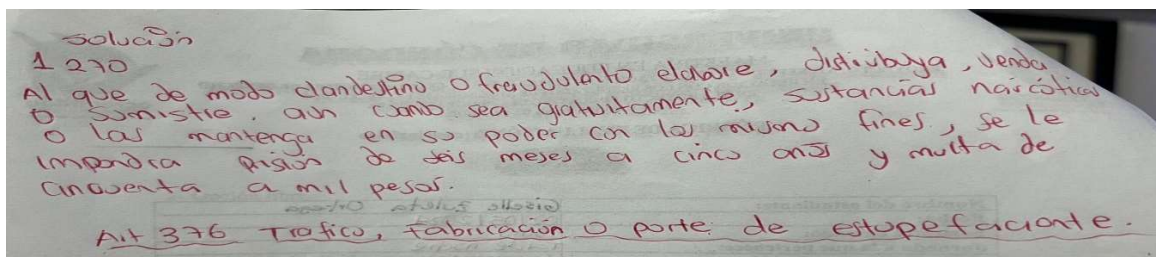 solución
1 270
Al que de modo clandestino o fraudulento elabore, distribuya, venda
o sumistre, aun cuando sea gratuitamente, sustancias narcóticas
o las mantenga en su poder con los mismo fines, se le
impondra prision de seis meses a cinco años y multa de
cincuenta a mil pesos.
Art 376 Trafico, fabricación o porte de estupefaciante.